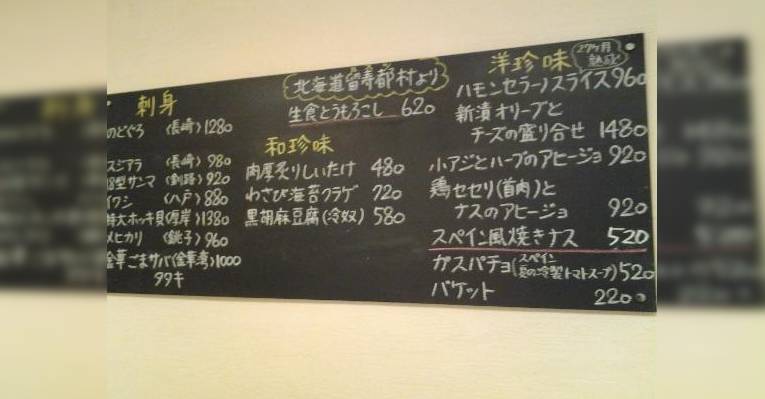 刺身
のどぐろ (長崎) 1280
スジアラ (長崎) 980
型サンマ (釧路) 920
イワシ (八戸) 880
特大ホッキ貝(厚岸) 1380
メヒカリ (銚子) 960
金華ごまサバ(金華湾) 1000
タタキ
北海道留寿都村より
生食とうもろこし 620
和珍味
肉厚炙りしいたけ 480
わさび海苔クラゲ 720
黒胡麻豆腐(冷奴) 580
洋珍味
27ヶ月
熟成
ハモンセラーノスライス 960
新漬オリーブと
チーズの盛り合せ 1480
小アジとハーブのアヒージョ 920
鶏セセリ(首肉)と
ナスのアヒージョ 920
スペイン風焼きナス 520
ガスパチョ(スペイン夏の冷製トマトスープ) 520
バケット 220